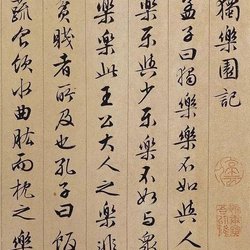 獨樂園記
孟子曰獨樂樂不如與人
樂樂與少樂樂不如與衆
樂樂此王公大人之樂非
貧賤者所及也孔子曰飯
蔬食飲水曲肱而枕之樂